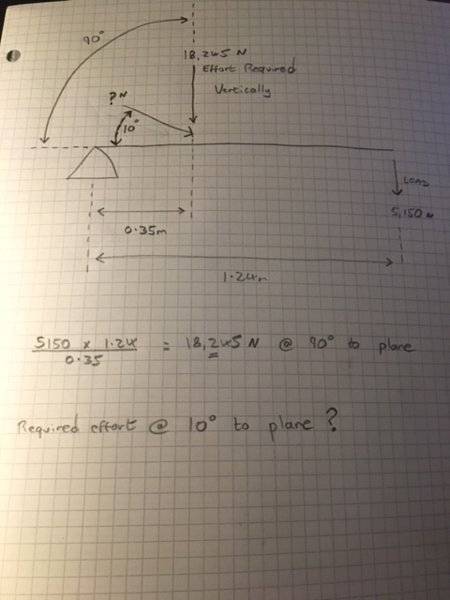 90°
18,245 N
Effort Required
Vertically
? N
10°
LOAD
5,150 N
0.35m
1.24m
5150 x 1.24
0.35
= 18,245 N @ 90° to plane
Required effort @ 10° to plane ?